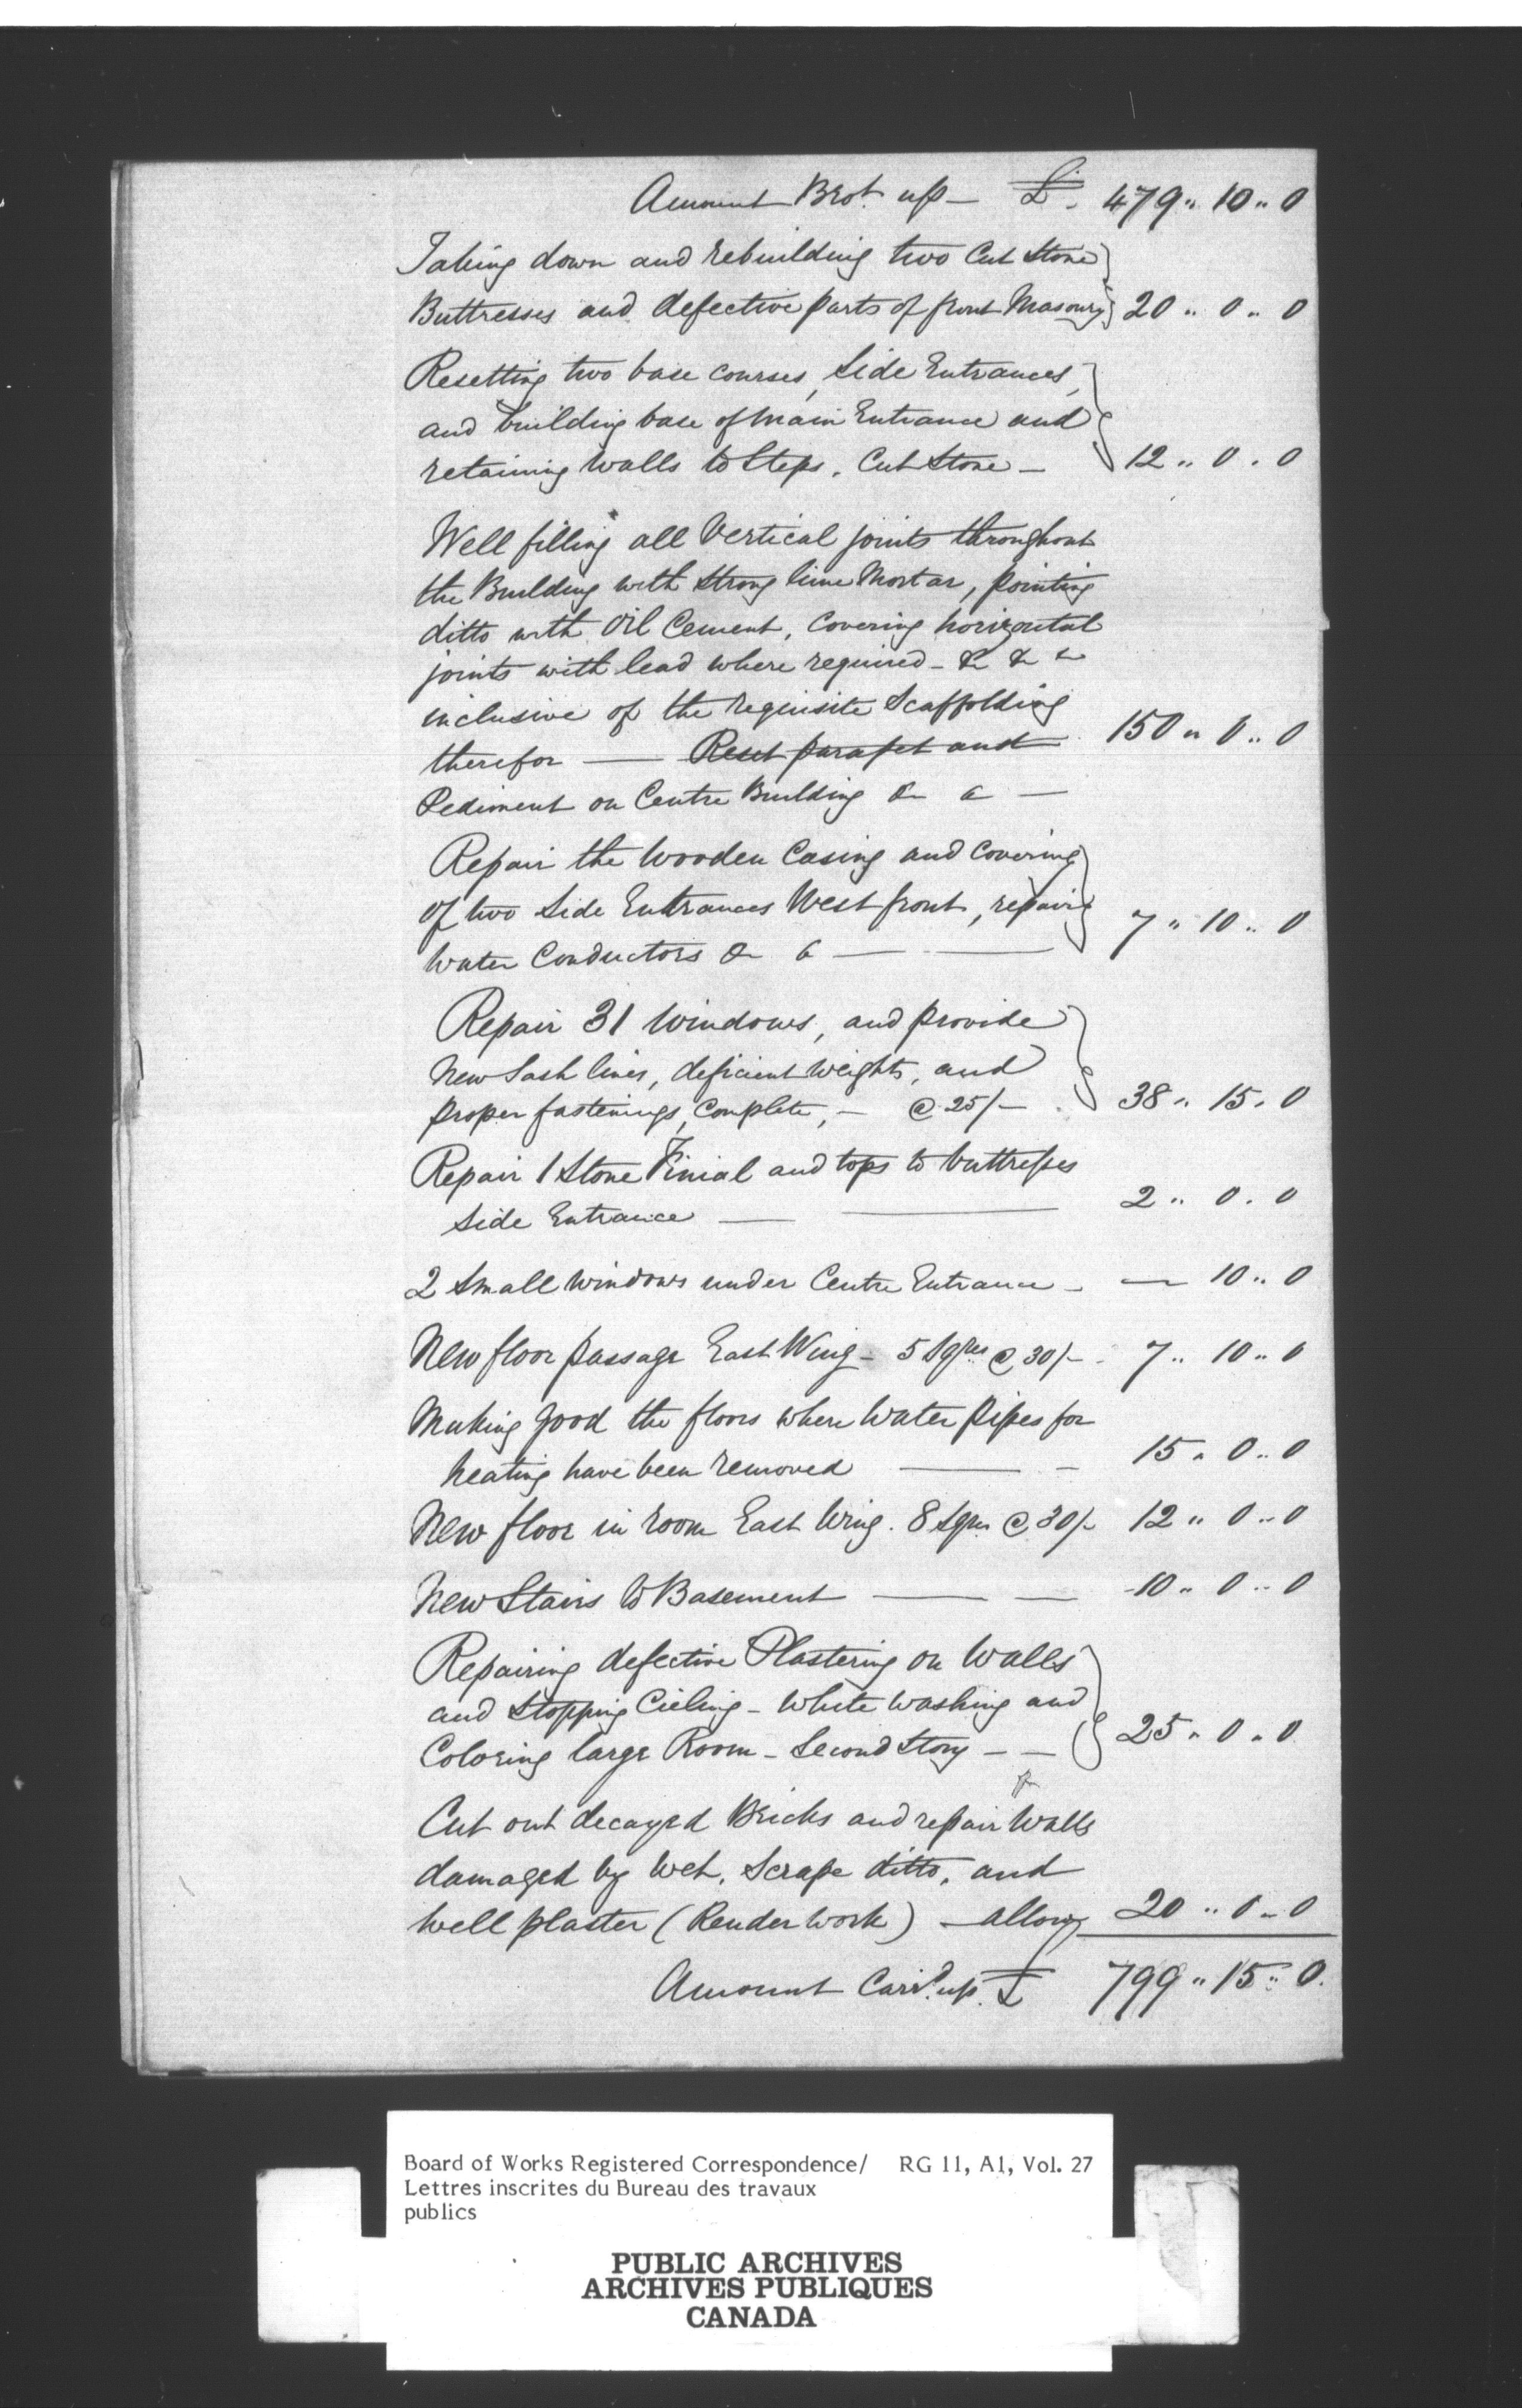 Amount Brot. up — £ - 479 " 10 " 0
Taking down and rebuilding two Cut Stone
Buttresses and defective parts of front Masonry 20 " 0 " 0
Resetting two base courses, Side Entrances,
and building base of Main Entrance and
retaining Walls to Steps. Cut Stone — 12 " 0 . 0
Well filling all Vertical joints throughout
the Building with Strong lime Mortar, pointing
ditto with Oil Cement, Covering horizontal
joints with lead where required - & & &
inclusive of the requisite Scaffolding
therefor — Reset parapet and 150 " 0 " 0
Pediment on Centre Building & c —
Repair the Wooden Casing and Covering
of two Side Entrances West front, repairing 7 " 10 " 0
Water Conductors & c —
Repair 31 Windows, and provide
New Sash lines, deficient Weights, and
proper fastenings, Complete, — @ 25/- . 38 " 15 . 0
Repair 1 Stone Finial and tops to buttresses
Side Entrance — 2 " 0 . 0
2 Small Windows under Centre Entrance - — 10 " 0
New floor passage East Wing - 5 Sqres @ 30/- - 7 " 10 " 0
Making good the floors where Water Pipes for
heating have been removed — - 15 " 0 " 0
New floor in room East Wing . 8 Sqrs @ 30/- 12 " 0 " 0
New Stairs to Basement — — 10 " 0 " 0
Repairing defective Plastering on Walls
and Stopping Cieling - White Washing and
Coloring large Room - Second Story - — 25 " 0 " 0
Cut out decayed Bricks and repair Walls
damaged by Wet, Scrape ditto, and
Well plaster (Render Work) — allow 20 " 0 - 0
Amount Carrd. up. £ 799 " 15 " 0.
Board of Works Registered Correspondence/ RG 11, A1, Vol. 27
Lettres inscrites du Bureau des travaux
publics
PUBLIC ARCHIVES
ARCHIVES PUBLIQUES
CANADA